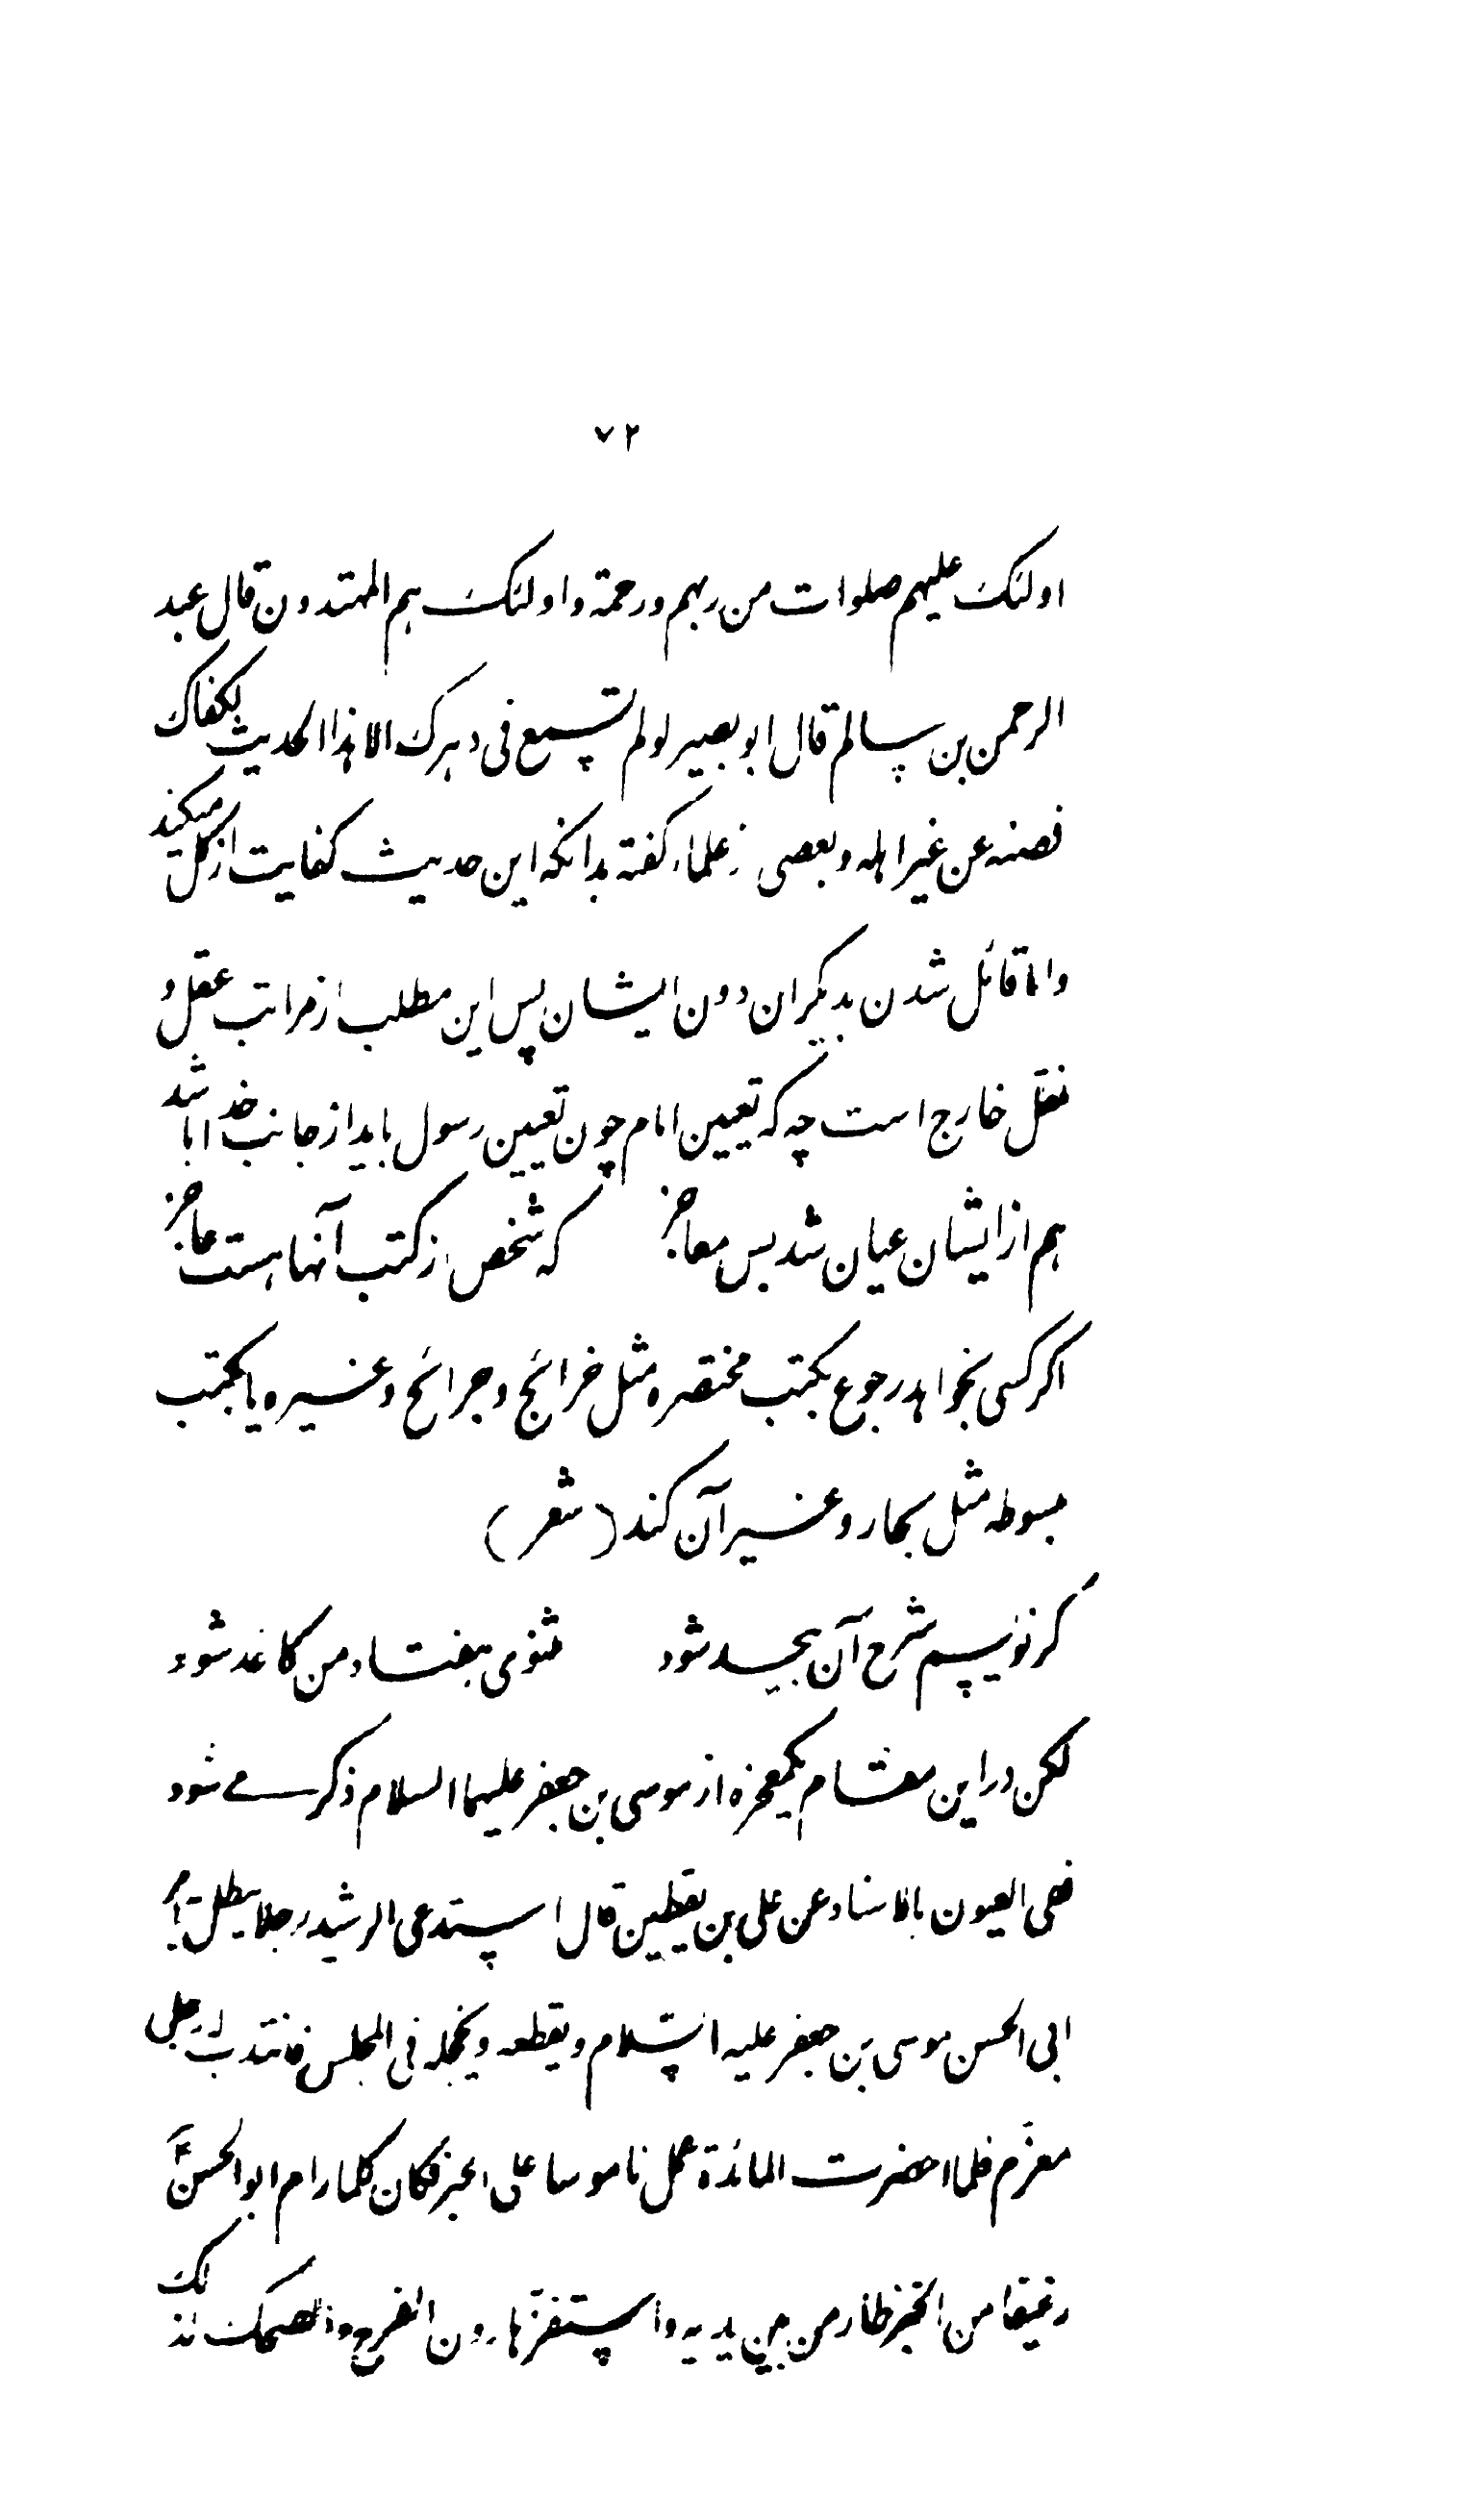 ۷۲
اولئک علیهم صلوات من ربهم ورحمة واولئک هم المهتدون قال عبد
الرحمن بن سالم قال ابو بصیر لو لم تسمع فی دهرک الا هذا الحدیث لکفاک
فصنه عن غیر اهله وبعضی از علماء گفته بدانکه این حدیث کفایت از کل میکند
واما قائل شدن بدیگران دون ایشان پس این مطلب از مراتب عقل و
نقل خارج است چه که تعیین امام چون تعیین رسول باید از جانب خدا باشد
هم از ایشان عیان شد بس معاجز که شخص از کتب آنها هست عاجز
اگر کسی بخواهد رجوع بکتب مختصره مثل خرائج و جرائح و غیره یا بکتب
مبسوطه مثل بحار و غیر آن کند (شعر)
گر نویسم شرح آن بیحد شود مثنوی هفتاد من کاغذ شود
لکن در این مقام یکمعجزه از موسی بن جعفر علیهما السلام ذکر می شود
ففی العیون بالاسناد عن علی بن یقطین قال استدعی الرشید رجلا یبطل به امر
ابی الحسن موسی بن جعفر علیه السلام ویقطعه ویخجله فی المجلس فانتدب له رجل
معزم فلما احضرت المائدة عمل ناموسا علی الخبز فکان کلما رام ابو الحسن ع
رغیفا من الخبز طار من بین یدیه واستفز هارون الفرح و الضحک لذلک